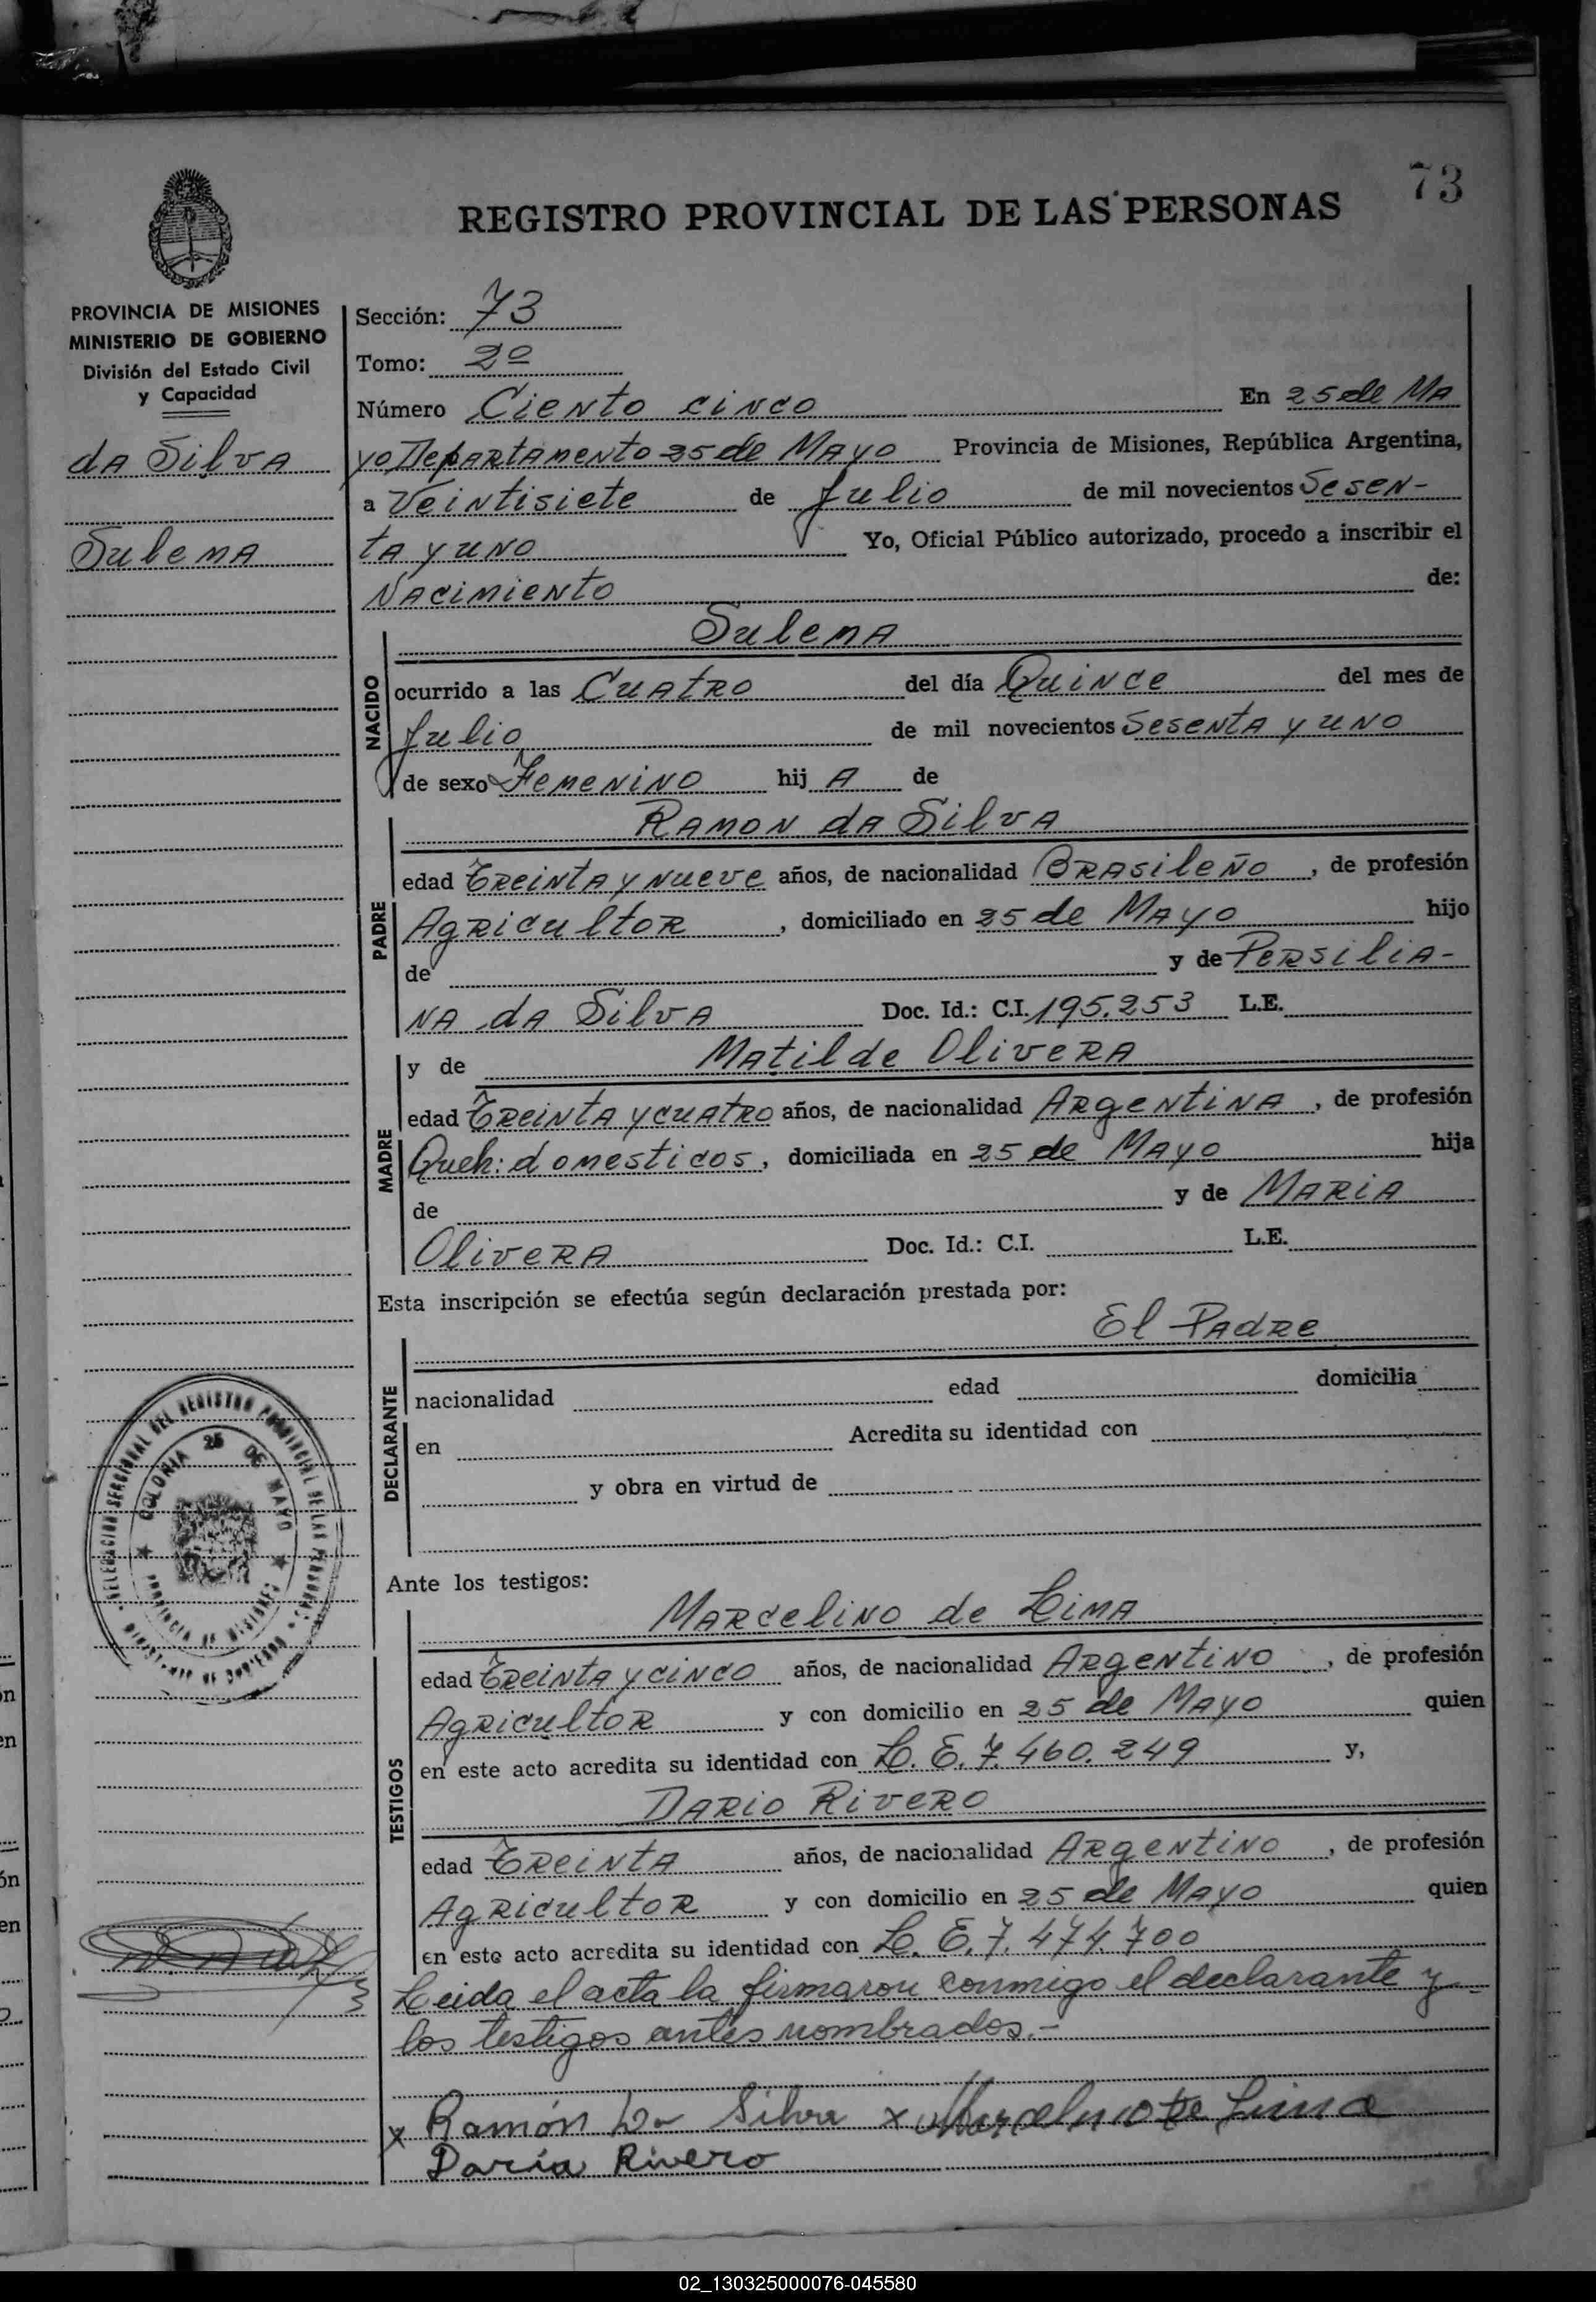 73
REGISTRO PROVINCIAL DE LAS PERSONAS
PROVINCIA DE MISIONES
MINISTERIO DE GOBIERNO
División del Estado Civil
y Capacidad
da Silva
Sulema
Sección: 73
Tomo: 2º
Número Ciento cinco En 25 de Ma
yo Departamento 25 de Mayo Provincia de Misiones, República Argentina,
a Veintisiete de Julio de mil novecientos Sesen-
ta y uno Yo, Oficial Público autorizado, procedo a inscribir el
Nacimiento de:
NACIDO
Sulema
ocurrido a las Cuatro del día Quince del mes de
Julio de mil novecientos Sesenta y uno
de sexo Femenino hij A de
PADRE
Ramon da Silva
edad Treinta y nueve años, de nacionalidad Brasileño, de profesión
Agricultor, domiciliado en 25 de Mayo hijo
de y de Persilia-
na da Silva Doc. Id.: C.I. 195.253 L.E.
MADRE
y de Matilde Olivera
edad Treinta y cuatro años, de nacionalidad Argentina, de profesión
Queh: domesticos, domiciliada en 25 de Mayo hija
de y de Maria
Olivera Doc. Id.: C.I. L.E.
Esta inscripción se efectúa según declaración prestada por:
DECLARANTE
El Padre
nacionalidad edad domicilia
en Acredita su identidad con
y obra en virtud de
DELEGACION SECCIONAL DEL REGISTRO PROVINCIAL DE LAS PERSONAS
COLONIA 25 DE MAYO
PROVINCIA DE MISIONES
MINISTERIO DE GOBIERNO
Ante los testigos:
TESTIGOS
Marcelino de Lima
edad Treinta y cinco años, de nacionalidad Argentino, de profesión
Agricultor y con domicilio en 25 de Mayo quien
en este acto acredita su identidad con L. E. 7.460.249 y,
Dario Rivero
edad Treinta años, de nacionalidad Argentino, de profesión
Agricultor y con domicilio en 25 de Mayo quien
en este acto acredita su identidad con L. E. 7.474.700
Leida el acta la firmaron conmigo el declarante y
los testigos antes nombrados.-
x Ramón Da Silva x Marcelino de Lima
Darío Rivero
02_130325000076-045580